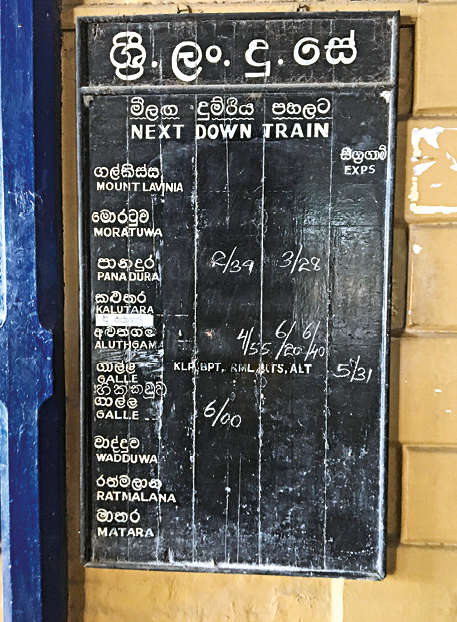 ශ්‍රී. ලං. දු. සේ
මීලඟ දුම්රිය පහලට
NEXT DOWN TRAIN
සීඝ්‍රගාමී
EXPS
ගල්කිස්ස
MOUNT LAVINIA
මොරටුව
MORATUWA
පානදුර 2/39 3/28
PANADURA
කළුතර
KALUTARA
අළුත්ගම 4/55 6/20 6/40
ALUTHGAMA
ගාල්ල KLP, BPT, RML, KTS, ALT 5/31
GALLE
හික්කඩුව
ගාල්ල 6/00
GALLE
වාද්දුව
WADDUWA
රත්මලාන
RATMALANA
මාතර
MATARA